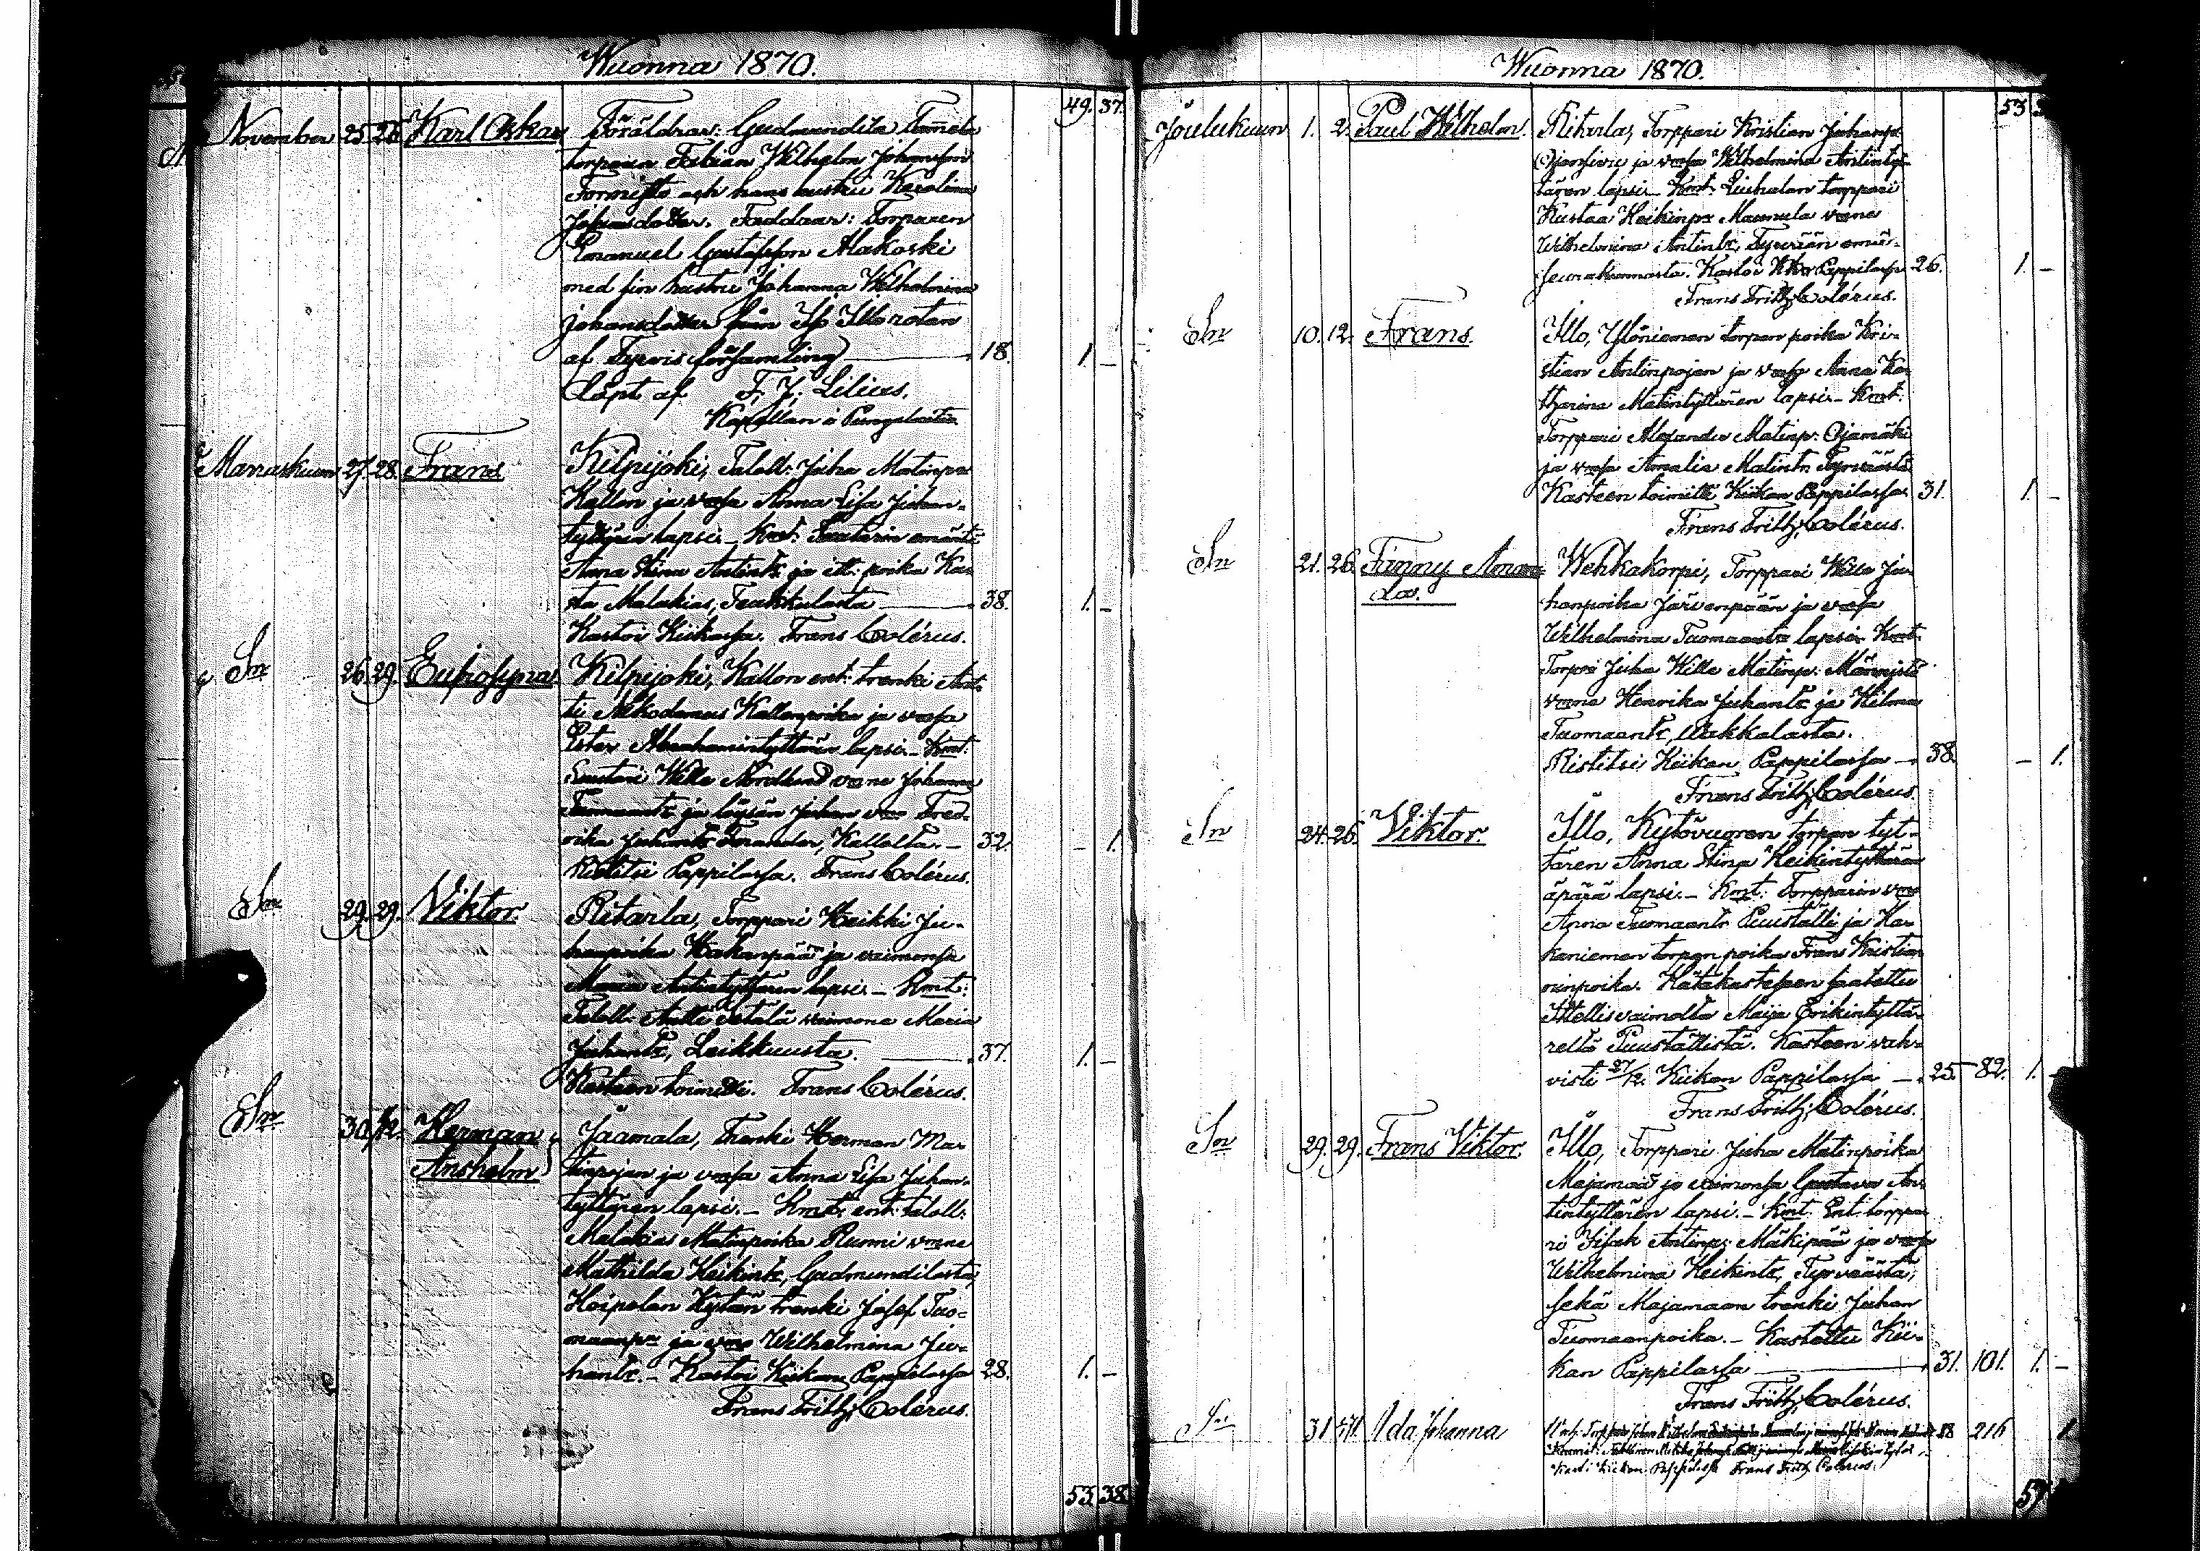 Wuonna 1870.
49. 37.
November 25 26 Karl Oskar Föräldrar: Gudmundila
torparn Fabian Wilhelm Johansson
och hans hustru Karolina
Johansdotter. Faddrar: Torparen
Emanuel Gustafsson Alakoski
med sin hustru Johanna Wilhelmina
Johansdotter från Illo rotan
af Tyrvis församling 18. 1. –
Döpt af F. J. Lilius.
Kapellan i Pungalaitio
Marraskuun 27. 28. Frans Kilpijoki, Taloll: Juha Matinpr
Kallon ja vmsa Anna Lisa Juhan-
tyttären lapsi. – Kmt: emäntä
Anna Stina Antintr ja itt. poika Kus-
ta Malakias, 38. 1. –
Kastoi Kiikassa. Frans Colérus.
Sn 26. 29. Eufrosyna Kilpijoki, Kallon ent: trenki Ant-
ti Nikodemus Kallenpoika ja vmsa
Ester Abrahamintyttären lapsi. – Kmt:
Wille Nordlund vmne Johanna
Tuomaantr ja Juhan vmo Fred-
rika Juhantr Kallolta. – 32. – 1.
Ristitsi Pappilassa. Frans Colérus.
Sn 29. 29. Viktor Ritarla, Torppari Heikki Ju-
hanpoika Hakanpään ja vaimonsa
Maria Antintyttären lapsi. – Kmt:
Taloll. Antti vaimone Maria
Juhantr, Leikkuusta. 37. 1. –
Kasteen toimitti. Frans Colérus.
Sn 30. 1/12. Herman Jaamala, Trenki Herman Ma-
Anshelm tinpojan ja vmsa Anna Lisa Juhan-
tyttären lapsi. – Kmt: ent: taloll:
Malakias Matinpoika Runni vmne
Mathilda Heikintr, Gudmundilasta,
Hoipolan Kytän trenki Josef Tuo-
maanpr ja vmo Wilhelmina Ju-
hantr. – Kastoi Kiikan Pappilassa 28. 1. –
Frans Fritz Colérus.
53. 38.
Wuonna 1870.
53
Joulukuun 1. 2. Paul Wilhelm. Ritarla, Torppari Kristian Juhanp.
Ojansivu ja vmsa Wilhelmina Antintyt-
tären lapsi. – Kmt: Liuhalan torppari
Kustaa Heikinpr Maunula vmne
Wilhelmina Antintr, Tyrvään emä-
seurakunnasta. Kastoi Kkan Pappilassa 26. 1. –
Frans Fritz Colérus.
Sn 10. 12. Frans. Illo, Ylöniemen torpan poika Kri-
stian Antinpojan ja vmsa Anna Ka-
tharina Matintyttären lapsi. – Kmt:
Torppari Alexander Matinp: Ojamäki
ja vmsa Amalia Matintr Tyrväästä.
Kasteen toimitti Kiikan Pappilassa 31. 1. –
Frans Fritz Colérus.
Sn 21. 26. Fanny Aman- Wehkakorpi, Torppari Wille Ju-
da. hanpoika Järvenpään ja vmsa
Wilhelmina Tuomaantr lapsi. Kmt:
Torpri Juha Wille Matinp: Männistö
vmne Henrika Juhantr ja Hilma
Tuomaantr, Makkalasta.
Ristitsi Kiikan Pappilassa – 38. – 1.
Frans Fritz Colérus.
Sn 24. 26. Viktor. Illo, Kytövuoren torpan tyt-
tären Anna Stina Heikintyttären
äpärä lapsi. – Kmt: Torpparin vmo
Anna Tuomaantr Puustalli ja Ha-
kaniemen torpan poika Frans Kristian
oinpoika. Hätäkasteksen saatettu
Itellisvaimolta Maija Erikintyttä-
reltä Puustallista. Kasteen vah-
visti 27/12. Kiikan Pappilassa – 25. 82. 1. –
Frans Fritz Colérus.
Sn 29. 29. Frans Viktor. Illo, Torppari Juha Matinpoika
Majamaa ja vaimonsa Gustava An-
tintyttären lapsi. – Kmt: Ent: torppa-
ri Isak Antinp: Mäkipää ja vmsa
Wilhelmina Heikintr, Tyrväästä,
sekä Majamaan trenki Juhan
Tuomaanpoika. – Kastettu Kii-
kan Pappilassa 31. 101. 1. –
Frans Fritz Colérus.
Sn 31 Ida Johanna 216 1
Kiikan Pappilassa Frans Fritz Colérus.